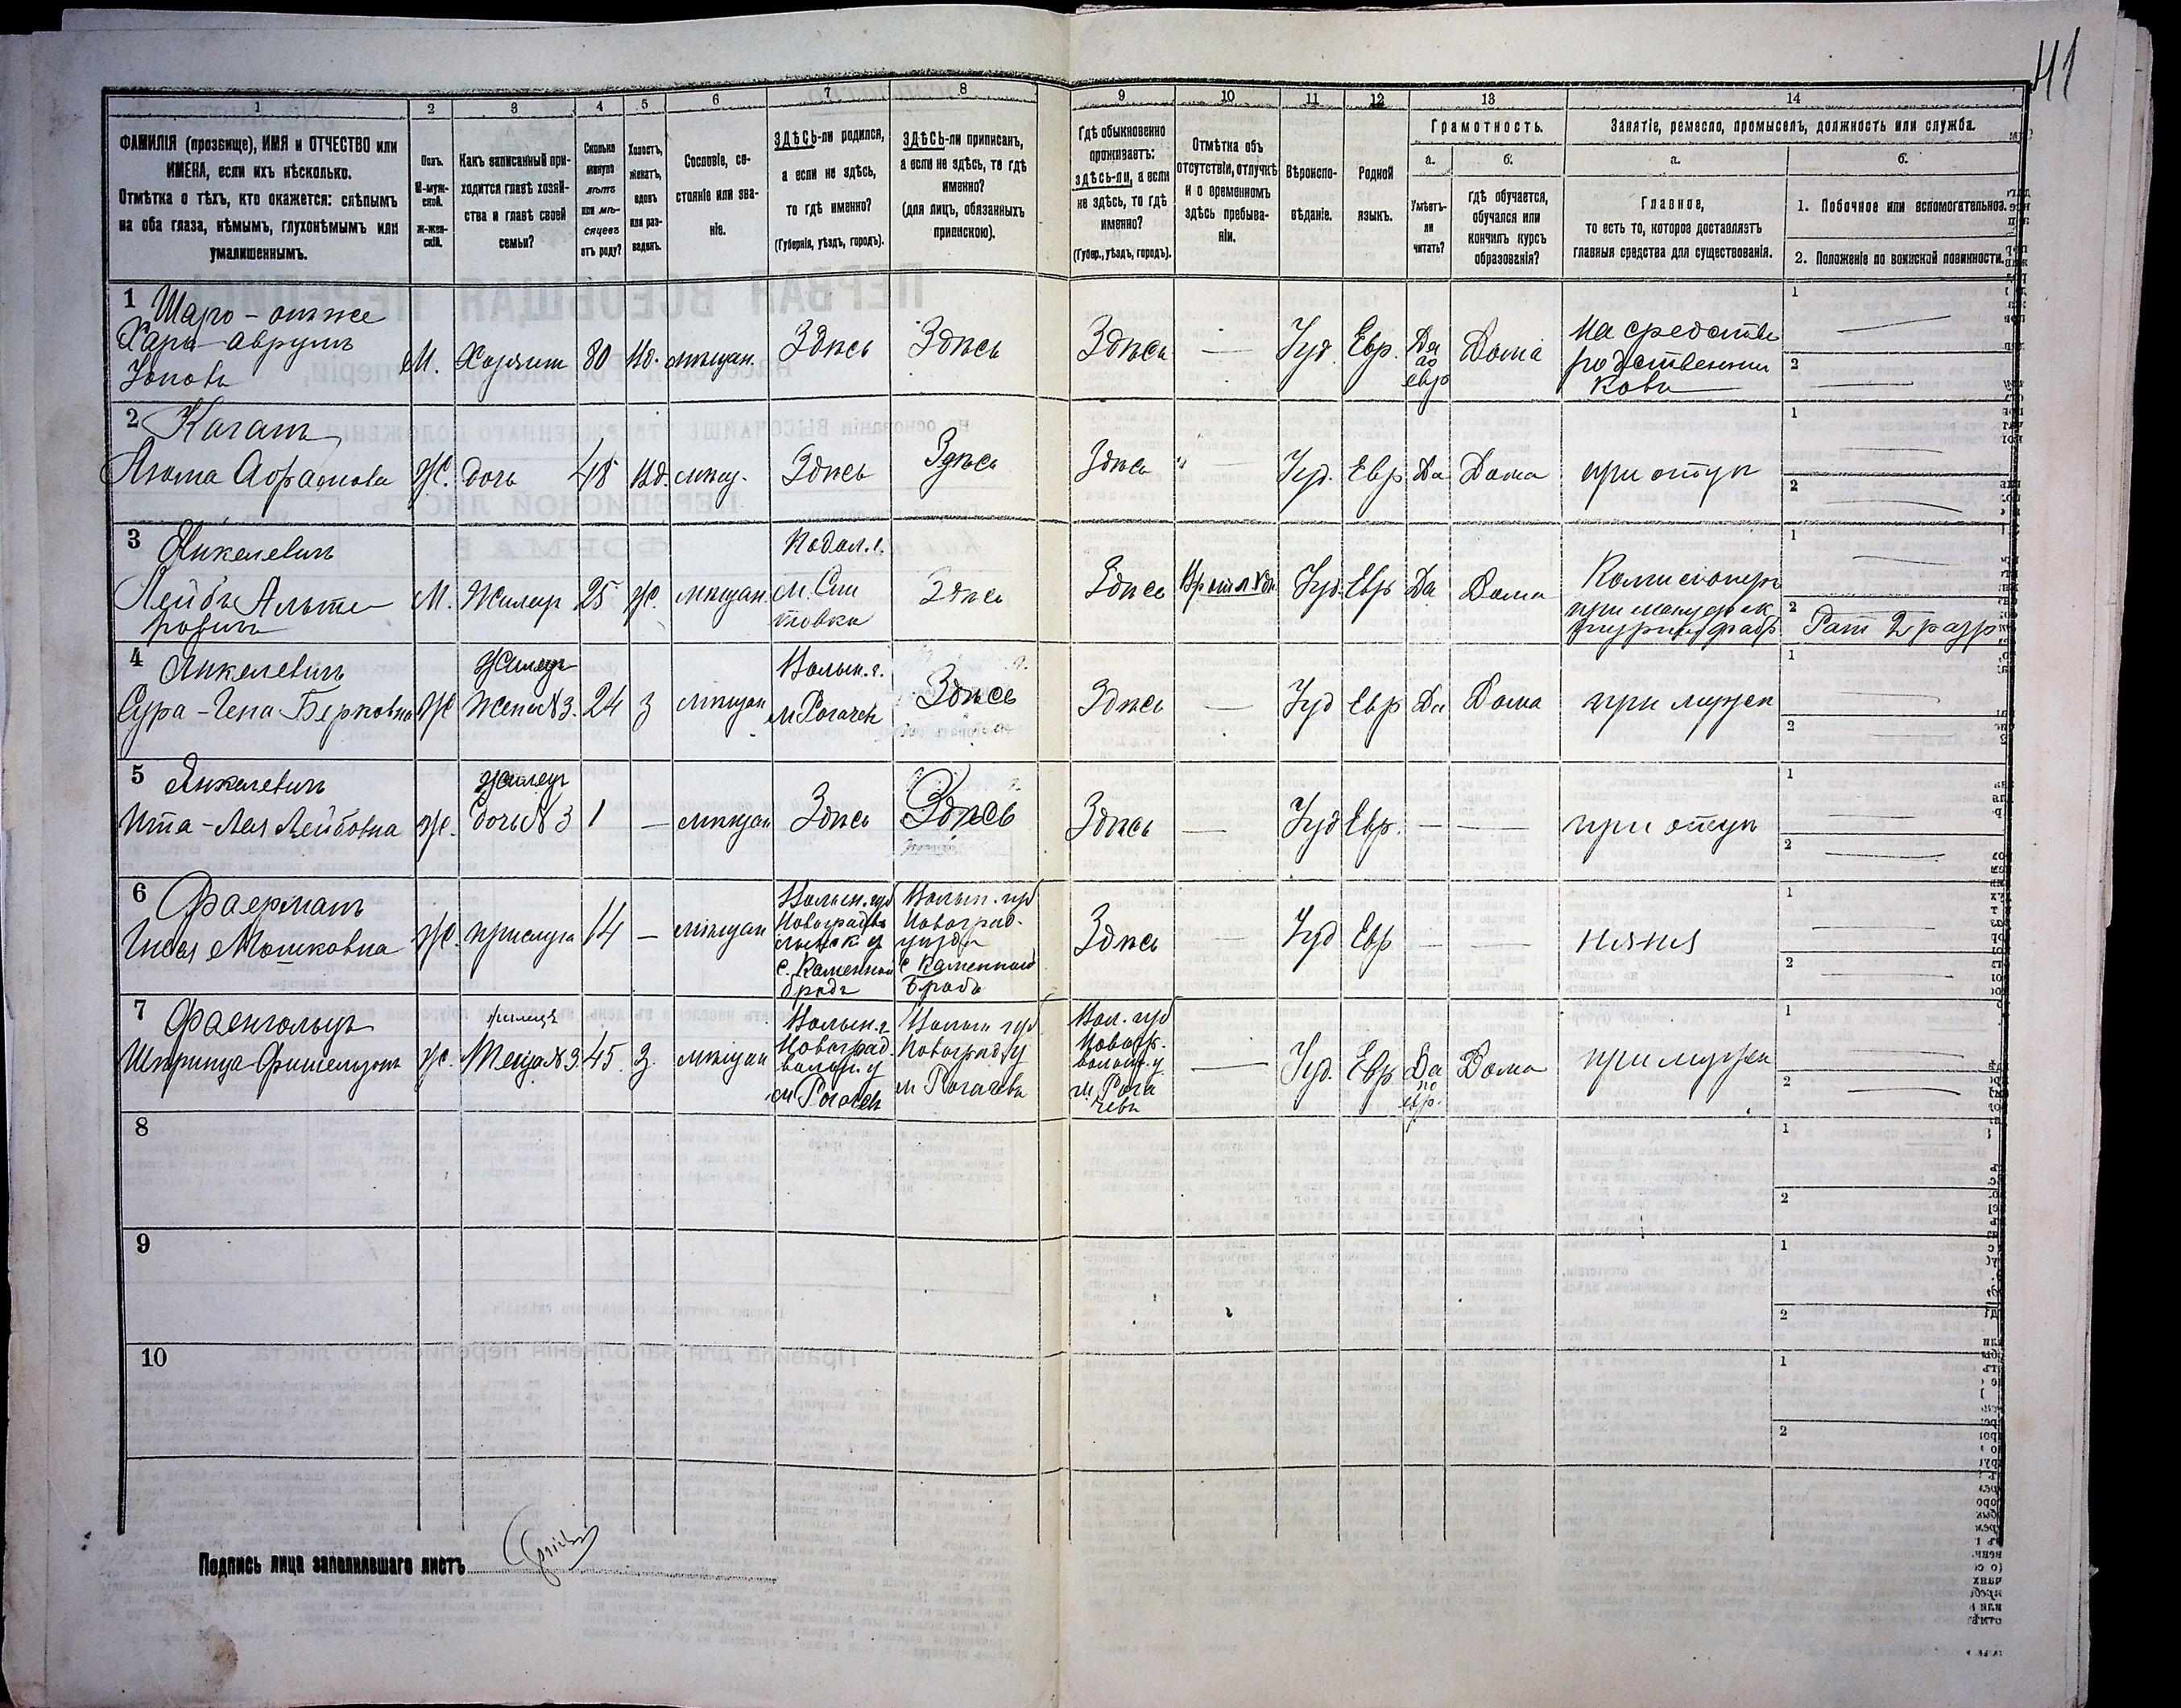 41
1
2
3
4
5
6
7
8
9
10
11
12
13
14
ФАМИЛІЯ (прозвище), ИМЯ и ОТЧЕСТВО или
ИМЕНА, если ихъ нѣсколько.
Отмѣтка о тѣхъ, кто окажется: слѣпымъ
на оба глаза, нѣмымъ, глухонѣмымъ или
умалишеннымъ.
Полъ.
М-муж-
ской.
Ж-жен-
скій.
Какъ записанный при-
ходится главѣ хозяй-
ства и главѣ своей
семьи?
Сколько
минуло
лѣтъ
или мѣ-
сяцевъ
отъ роду?
Холостъ,
женатъ,
вдовъ
или раз-
веденъ.
Сословіе, со-
стояніе или зва-
ніе.
ЗДѢСЬ-ли родился,
а если не здѣсь,
то гдѣ именно?
(Губернія, уѣздъ, городъ).
ЗДѢСЬ-ли приписанъ,
а если не здѣсь, то гдѣ
именно?
(для лицъ, обязанныхъ
припискою).
Гдѣ обыкновенно
проживаетъ:
здѣсь-ли, а если
не здѣсь, то гдѣ
именно?
(Губер., уѣздъ, городъ).
Отмѣтка объ
отсутствіи, отлучкѣ
и о временномъ
здѣсь пребыва-
ніи.
Вѣроиспо-
вѣданіе.
Родной
языкъ.
Грамотность.
а.
б.
Умѣетъ-
ли
читать?
Гдѣ обучается,
обучался или
кончилъ курсъ
образованія?
Занятіе, ремесло, промыселъ, должность или служба.
а.
б.
Главное,
то есть то, которое доставляетъ
главныя средства для существованія.
1. Побочное или вспомогательное.
2. Положеніе по воинской повинности.
1 Шаро - онъ же
Хара Аврумъ
М. Хозяинъ 80 Вд. мѣщан. Здѣсь Здѣсь Здѣсь — Іуд. Евр. Да по евр Дома
На средства
родственни
ковъ
1
2
2 Каганъ
Абрамова Ж. дочь 48 Вд. мѣщ. Здѣсь Здѣсь Здѣсь — Іуд. Евр Да Дома при отцѣ
1
2
3 Янкелевичъ
Лейбъ Альте
ровичъ
М. Жилец 25 Ж. мѣщан.
Подол. г.
м. Сни
товка
Здѣсь Здѣсь Іуд. Евр Да Дома
Комисіонеръ
при мануфак
турной фабр
1
2 Рат 2 разр
4 Янкелевичъ
Сура - Гена Берковна Ж
Жилец
Жена №3. 24 З мѣщан
Волын. г.
м Рогачевъ
Здѣсь Здѣсь — Іуд Евр Да Дома при мужѣ
1
2
5 Янкелевичъ
Ита - Лея Лейбовна Ж.
Жилец
дочь №3 1 — мѣщан Здѣсь Здѣсь Здѣсь — Іуд Евр. — — при отцѣ
1
2
6 Фаерманъ
Мошковна Ж. прислуга 14 — мѣщан
Волын. губ
Новоградъ
волынск у
с. Каменный
бродъ
Волын. губ
Новоград-
уѣзда
с Каменный
Бродъ
Здѣсь — Іуд Евр — — няня
1
2
7 Фаенгольцъ
Шпринца Фишелевна Ж.
жилецъ
Теща №3. 45. З. мѣщан
Волын. г
Новоград
волын. у
м Рогачевъ
Волын губ
Новоград у
м Рогачевъ
Вол. губ
Новогр.
волын. у
м. Рога
чевъ
— Іуд. Евр Да по евр. Дома при мужѣ
1
2
8
1
2
9
1
2
10
1
2
Подпись лица заполнявшаго листъ